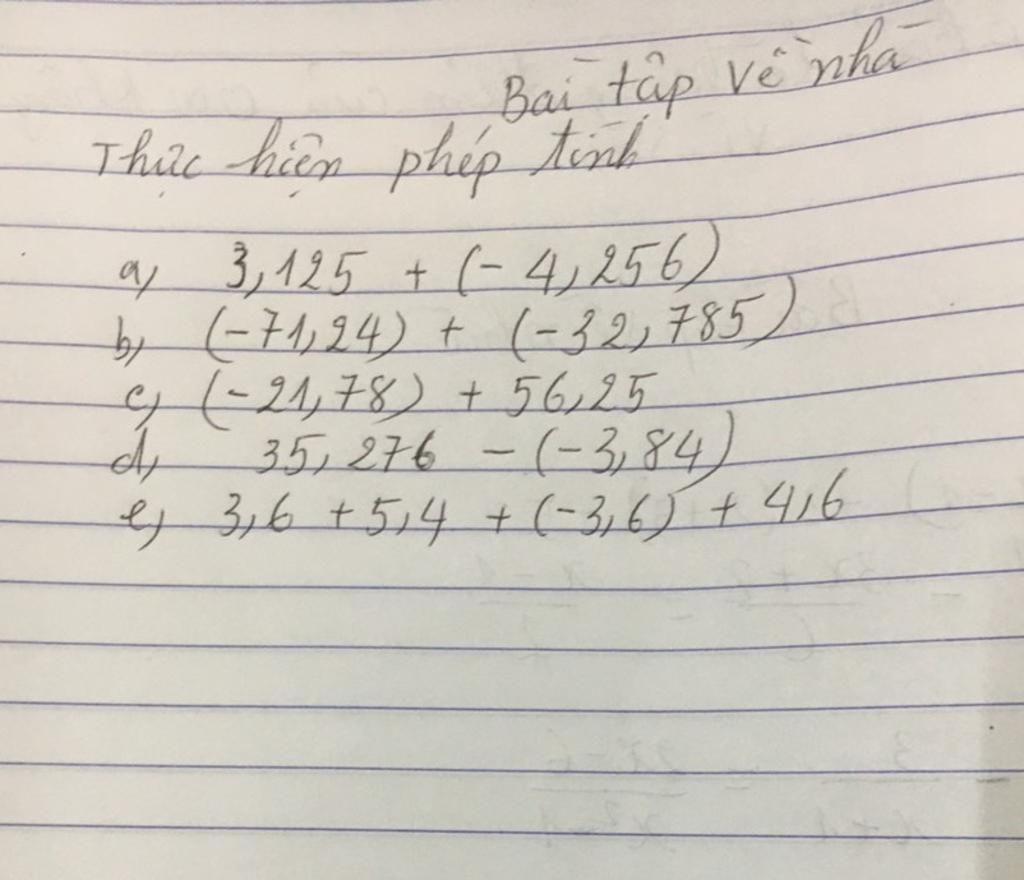 Bài tập về nhà
Thực hiện phép tính
a, 3,125 + (-4,256)
b, (-71,24) + (-32,785)
c, (-21,78) + 56,25
d, 35,276 - (-3,84)
e, 3,6 + 5,4 + (-3,6) + 4,6